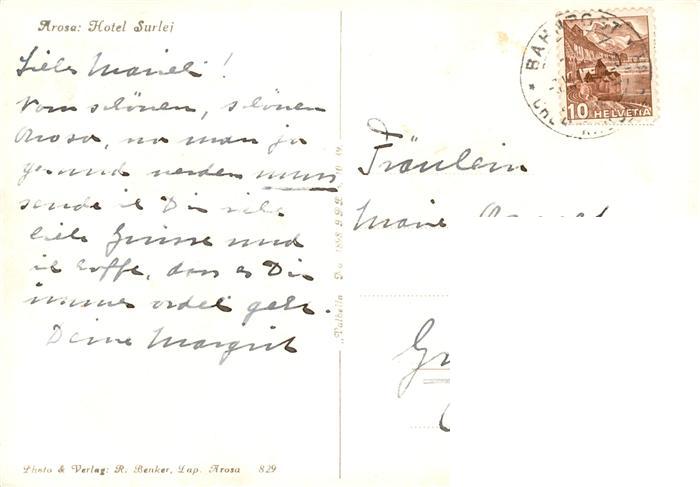 Arosa: Hotel Surlej
Liebs Marieli!
Vom schönen, schönen
Arosa, wo man ja
gesund werden muss
sende ich Dir viele
liebe Grüsse und
ich hoffe, dass es Dir
immer ordeli geht.
Deine Margrit
Photo & Verlag: R. Benker, Pap. Arosa 829
BAHNPOST
10 HELVETIA
Fräulein
Marie